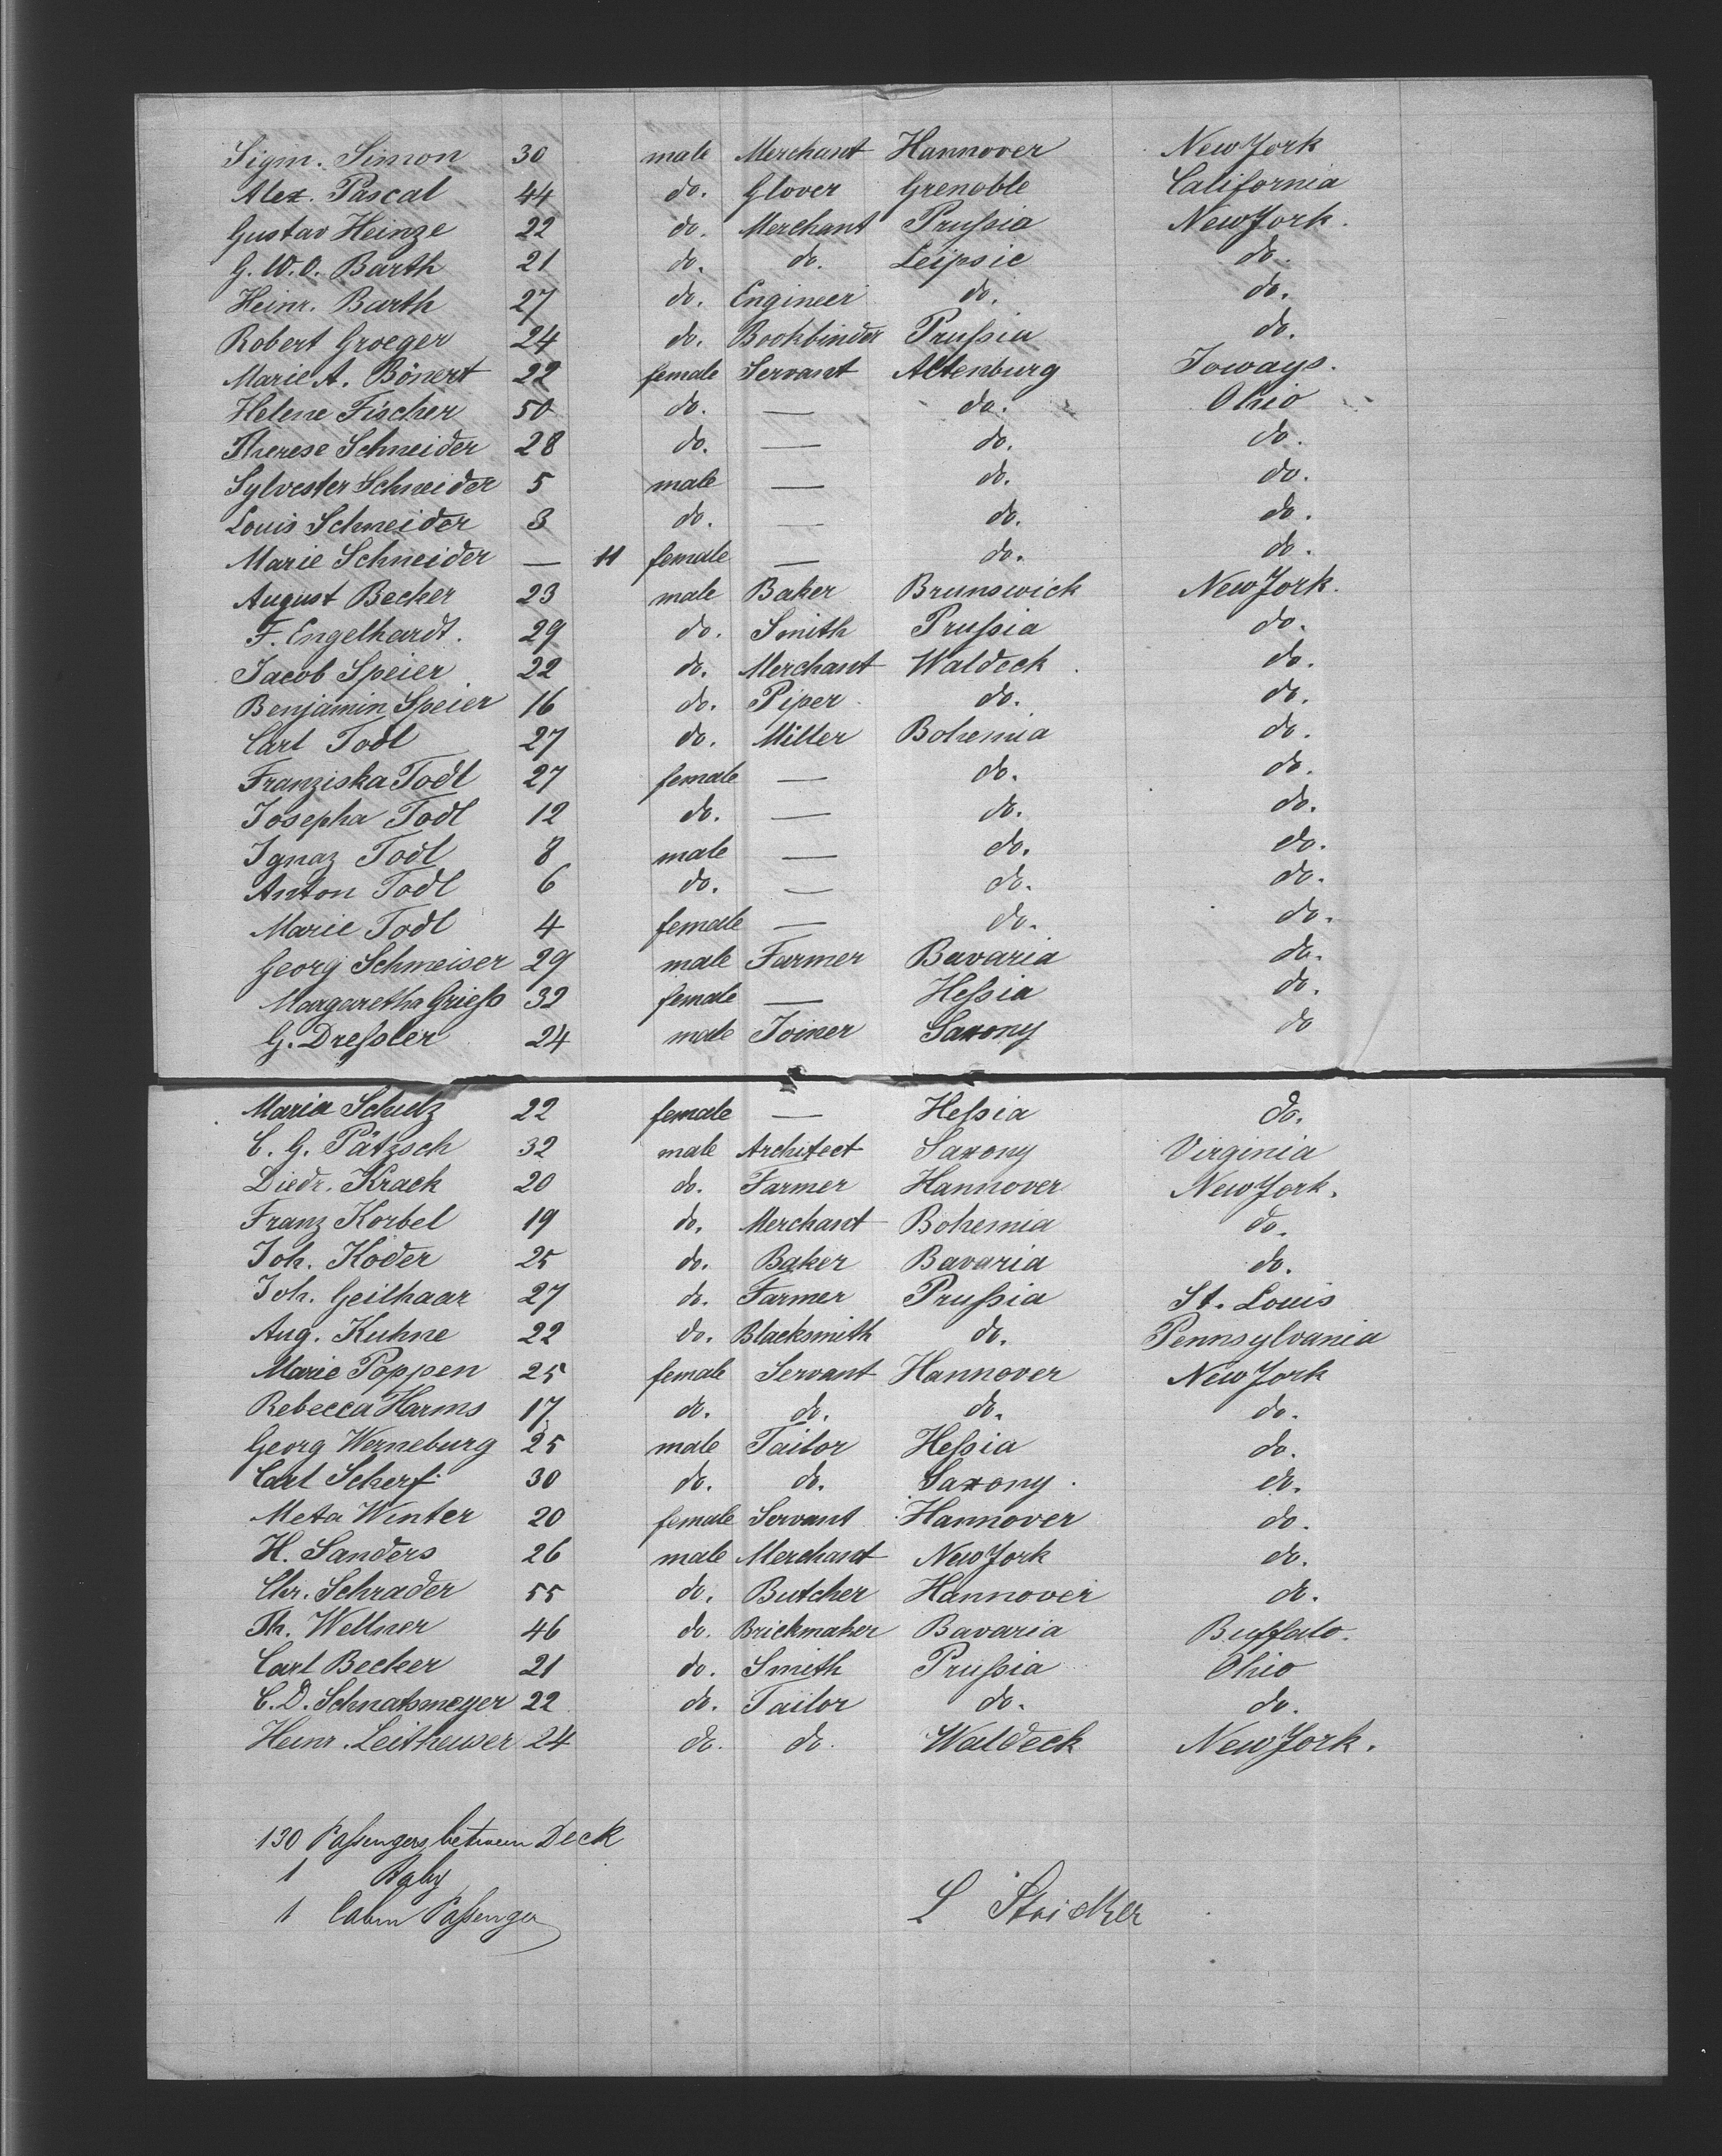 Sigm. Simon 30 male Merchant Hannover New York
Alex. Pascal 44 do. Glover Grenoble California
Gustav Heinze 22 do. Merchant Prußia New York.
G. W. O. Barth 21 do. do. Leipsic do.
Heinr. Barth 27 do. Engineer do. do.
Robert Groeger 24 do. Bookbinder Prußia do.
Marie A. Bönert 22 female Servant Altenburg Joways.
Helene Fischer 50 do. — do. Ohio
Therese Schneider 28 do. — do. do.
Sylvester Schneider 5 male — do. do.
Louis Schneider 3 do. — do. do.
Marie Schneider — 11 female — do. do.
August Becker 23 male Baker Brunswick New York.
F. Engelhardt. 29 do. Smith Prußia do.
Jacob Speier 22 do. Merchant Waldeck do.
Benjamin Speier 16 do. Piper do. do.
Carl Todl 27 do. Miller Bohemia do.
Franziska Todl 27 female — do. do.
Josepha Todl 12 do. — do. do.
Ignaz Todl 8 male — do. do.
Anton Todl 6 do. — do. do.
Marie Todl 4 female — do. do.
Georg Schmeiser 29 male Farmer Bavaria do.
Margaretha Grieß 32 female — Heßia do.
G. Dreßler 24 male Joiner Saxony do
Maria Schulz 22 female — Heßia do.
C. G. Pätzsch 32 male Architect Saxony Virginia
Diedr. Krack 20 do. Farmer Hannover New York.
Franz Korbel 19 do. Merchant Bohemia do.
Joh. Köder 25 do. Baker Bavaria do.
Joh. Geilhaar 27 do. Farmer Prußia St. Louis
Aug. Kuhne 22 do. Blacksmith do. Pennsylvania
Marie Poppen 25 female Servant Hannover New York
Rebecca Harms 17 do. do. do. do.
Georg Werneburg 25 male Tailor Heßia do.
Carl Scherf. 30 do. do. Saxony. do.
Meta Winter 20 female Servant Hannover do.
H. Sanders 26 male Merchant New York do.
Chr. Schrader 55 do. Butcher Hannover do.
Th. Wellner 46 do. Brickmaker Bavaria Buffalo.
Carl Becker 21 do. Smith Prußia Ohio
C. D. Schnatsmeyer 22 do. Tailor do. do.
Heinr. Leitheuser 24 do. do. Waldeck New York.
130 Paßengers between Deck
1 Baby
1 Cabin Paßenger
L